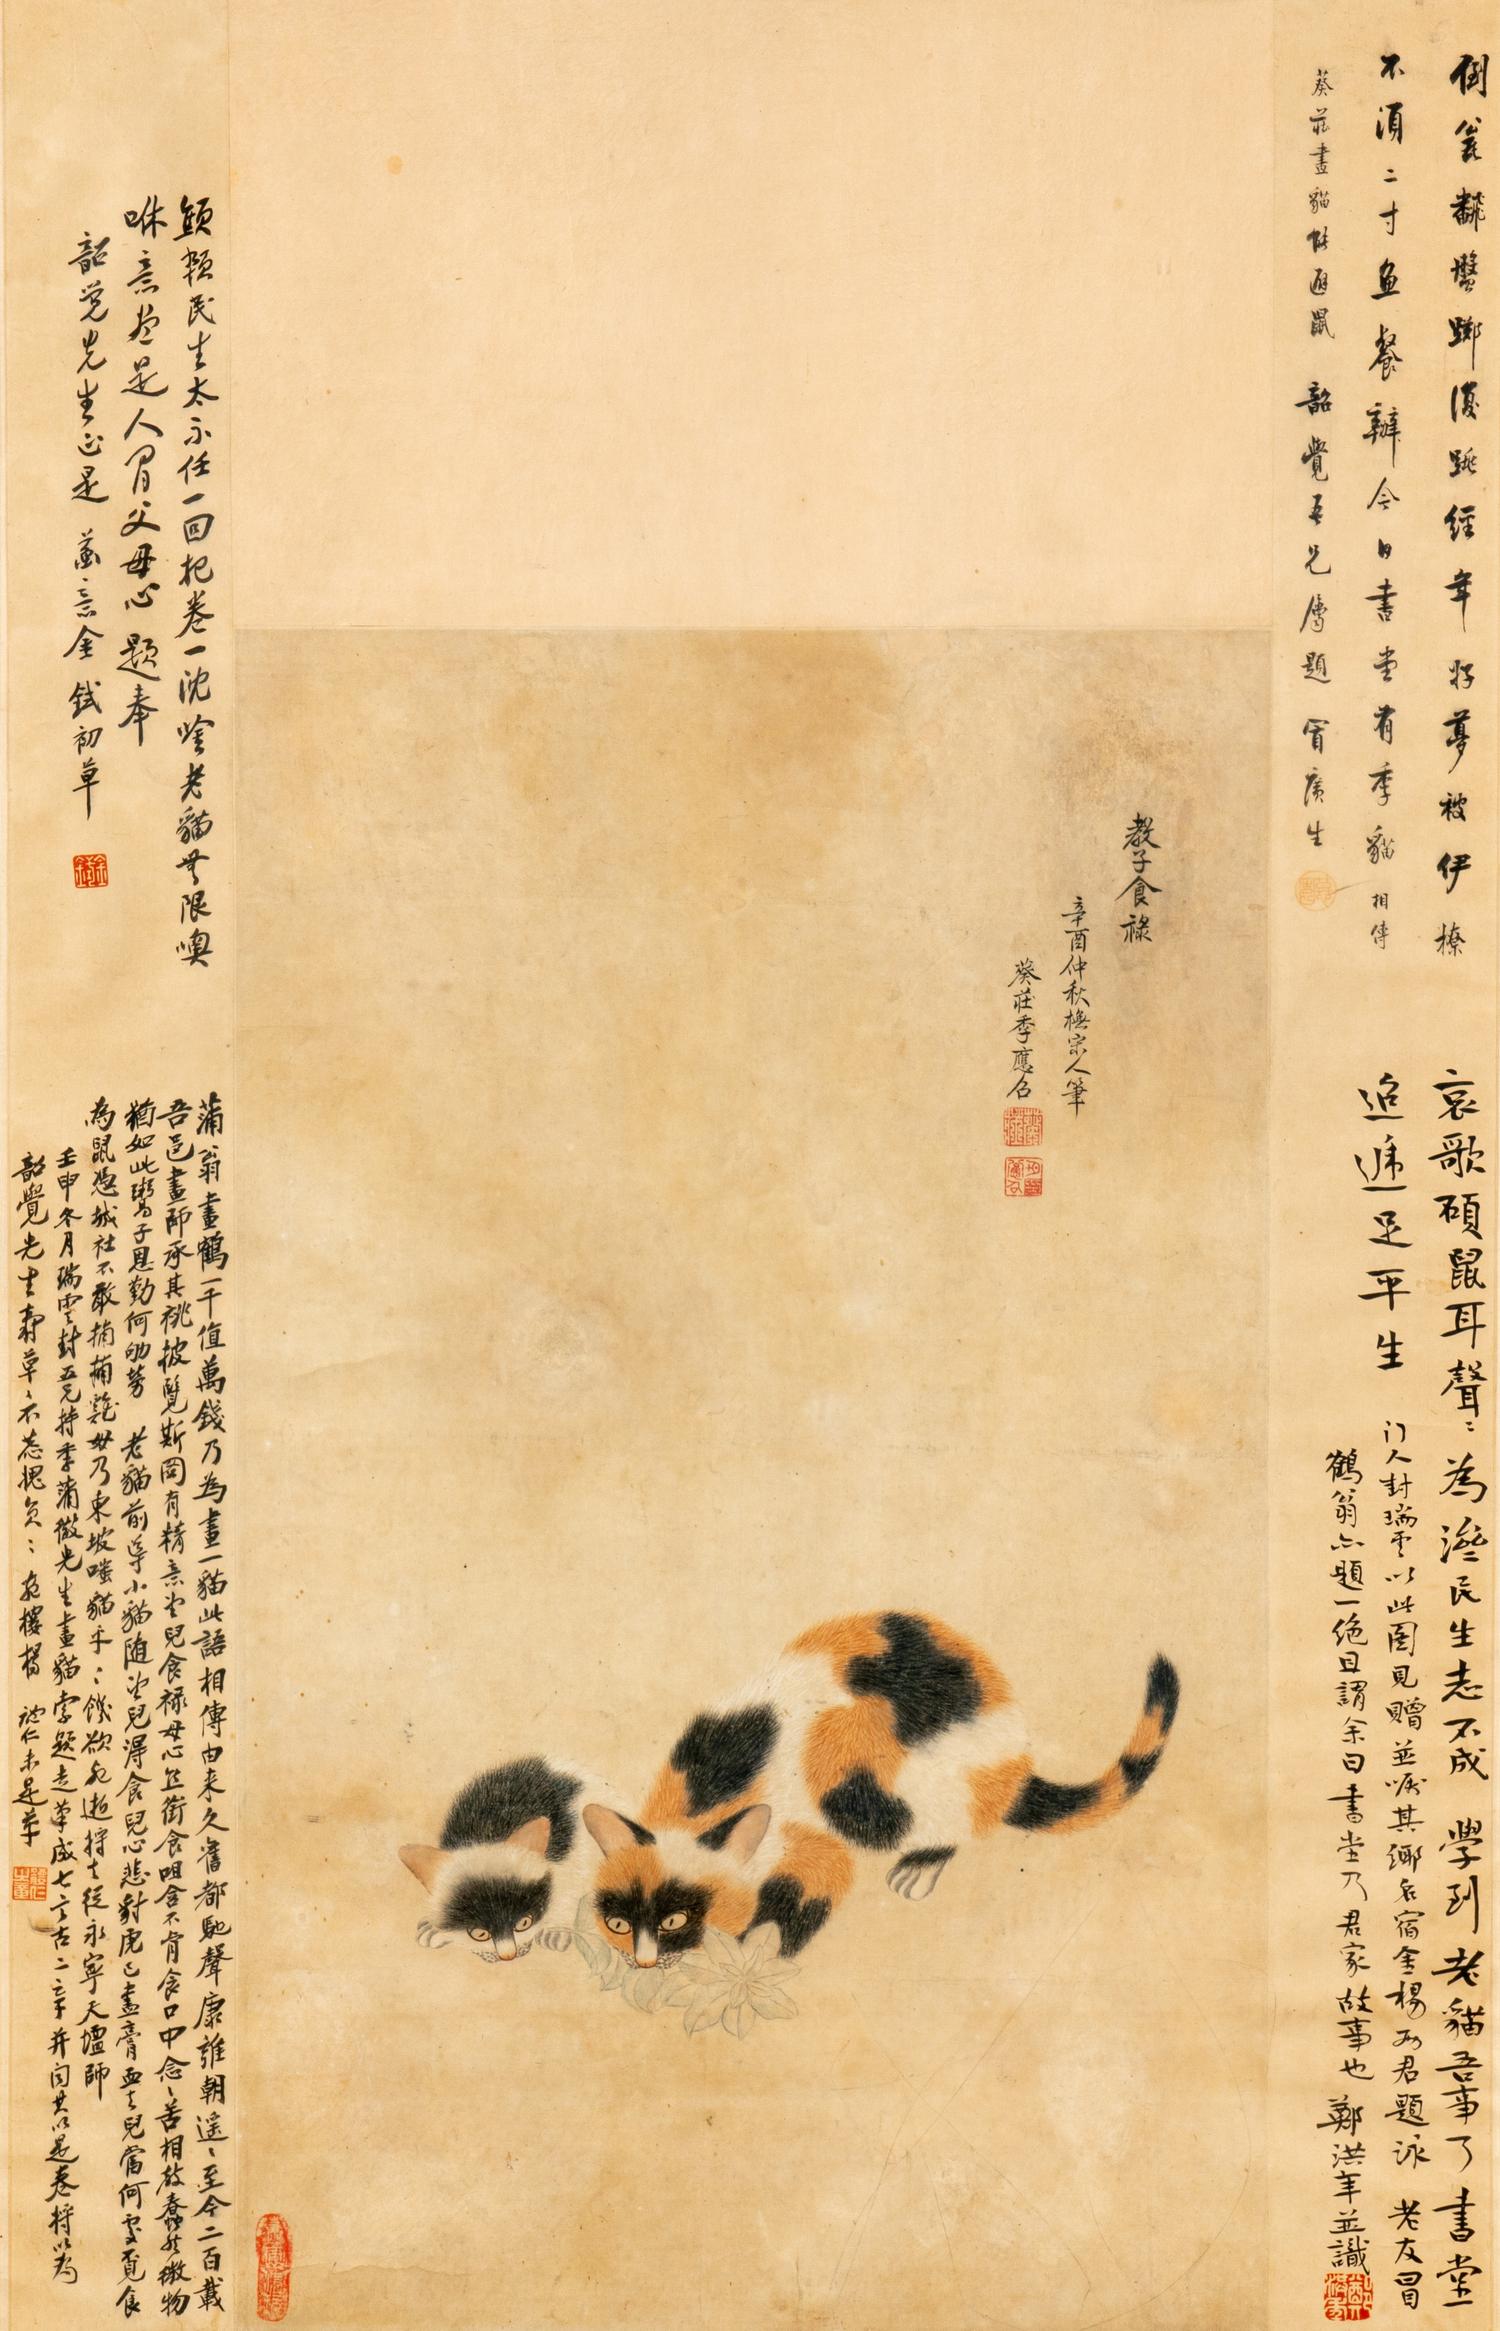 倒瓮翻盤擲復跳經年好夢被伊撩
不須二寸魚餐辦今日書堂有季貓 相傳
葵莊畫貓能避鼠 韶覺吾兄属題 冒廣生
哀歌碩鼠耳聲〻為澁民生志不成 學到老貓吾事了書堂
迢遞足平生 门人封瑞雲以此圖見贈並囑其鄉名宿金楊两君題詠 老友冒
鶴翁亦題一绝且謂余曰書堂乃君家故事也 鄭洪年並識
教子食祿
辛酉仲秋橅宗人筆
葵莊季應召
民生太不任一回把卷一沈唫老貓無限噢
咻意盡是人間父母心 題奉
韶覺先生正是 金鉽初草
蒲翁畫鶴一千值萬錢乃為畫一貓此語相傳由来久舊都馳聲康雍朝遥〻至今二百載
吾邑畫師承其祧披覽斯圖有精意坐兒食祿母心 銜食咀含不肯食口中念〻苦相教蠢然微物
猶如此鬻子恩勤何劬勞 老貓前導小貓随坐兒得食兒心悲對虎已盡膏血去兒當何處覓食
為鼠憑城社不敢捕捕雞 乃東坡嗤貓乎〻饑欲死逝将去從永寧天壇師
壬申冬月瑞雲封五兄持季蒲徵先生畫貓索題走筆成七言古二章并 以是卷将以為
韶覺先生壽草〻不恭愧負〻 樓楊 初草